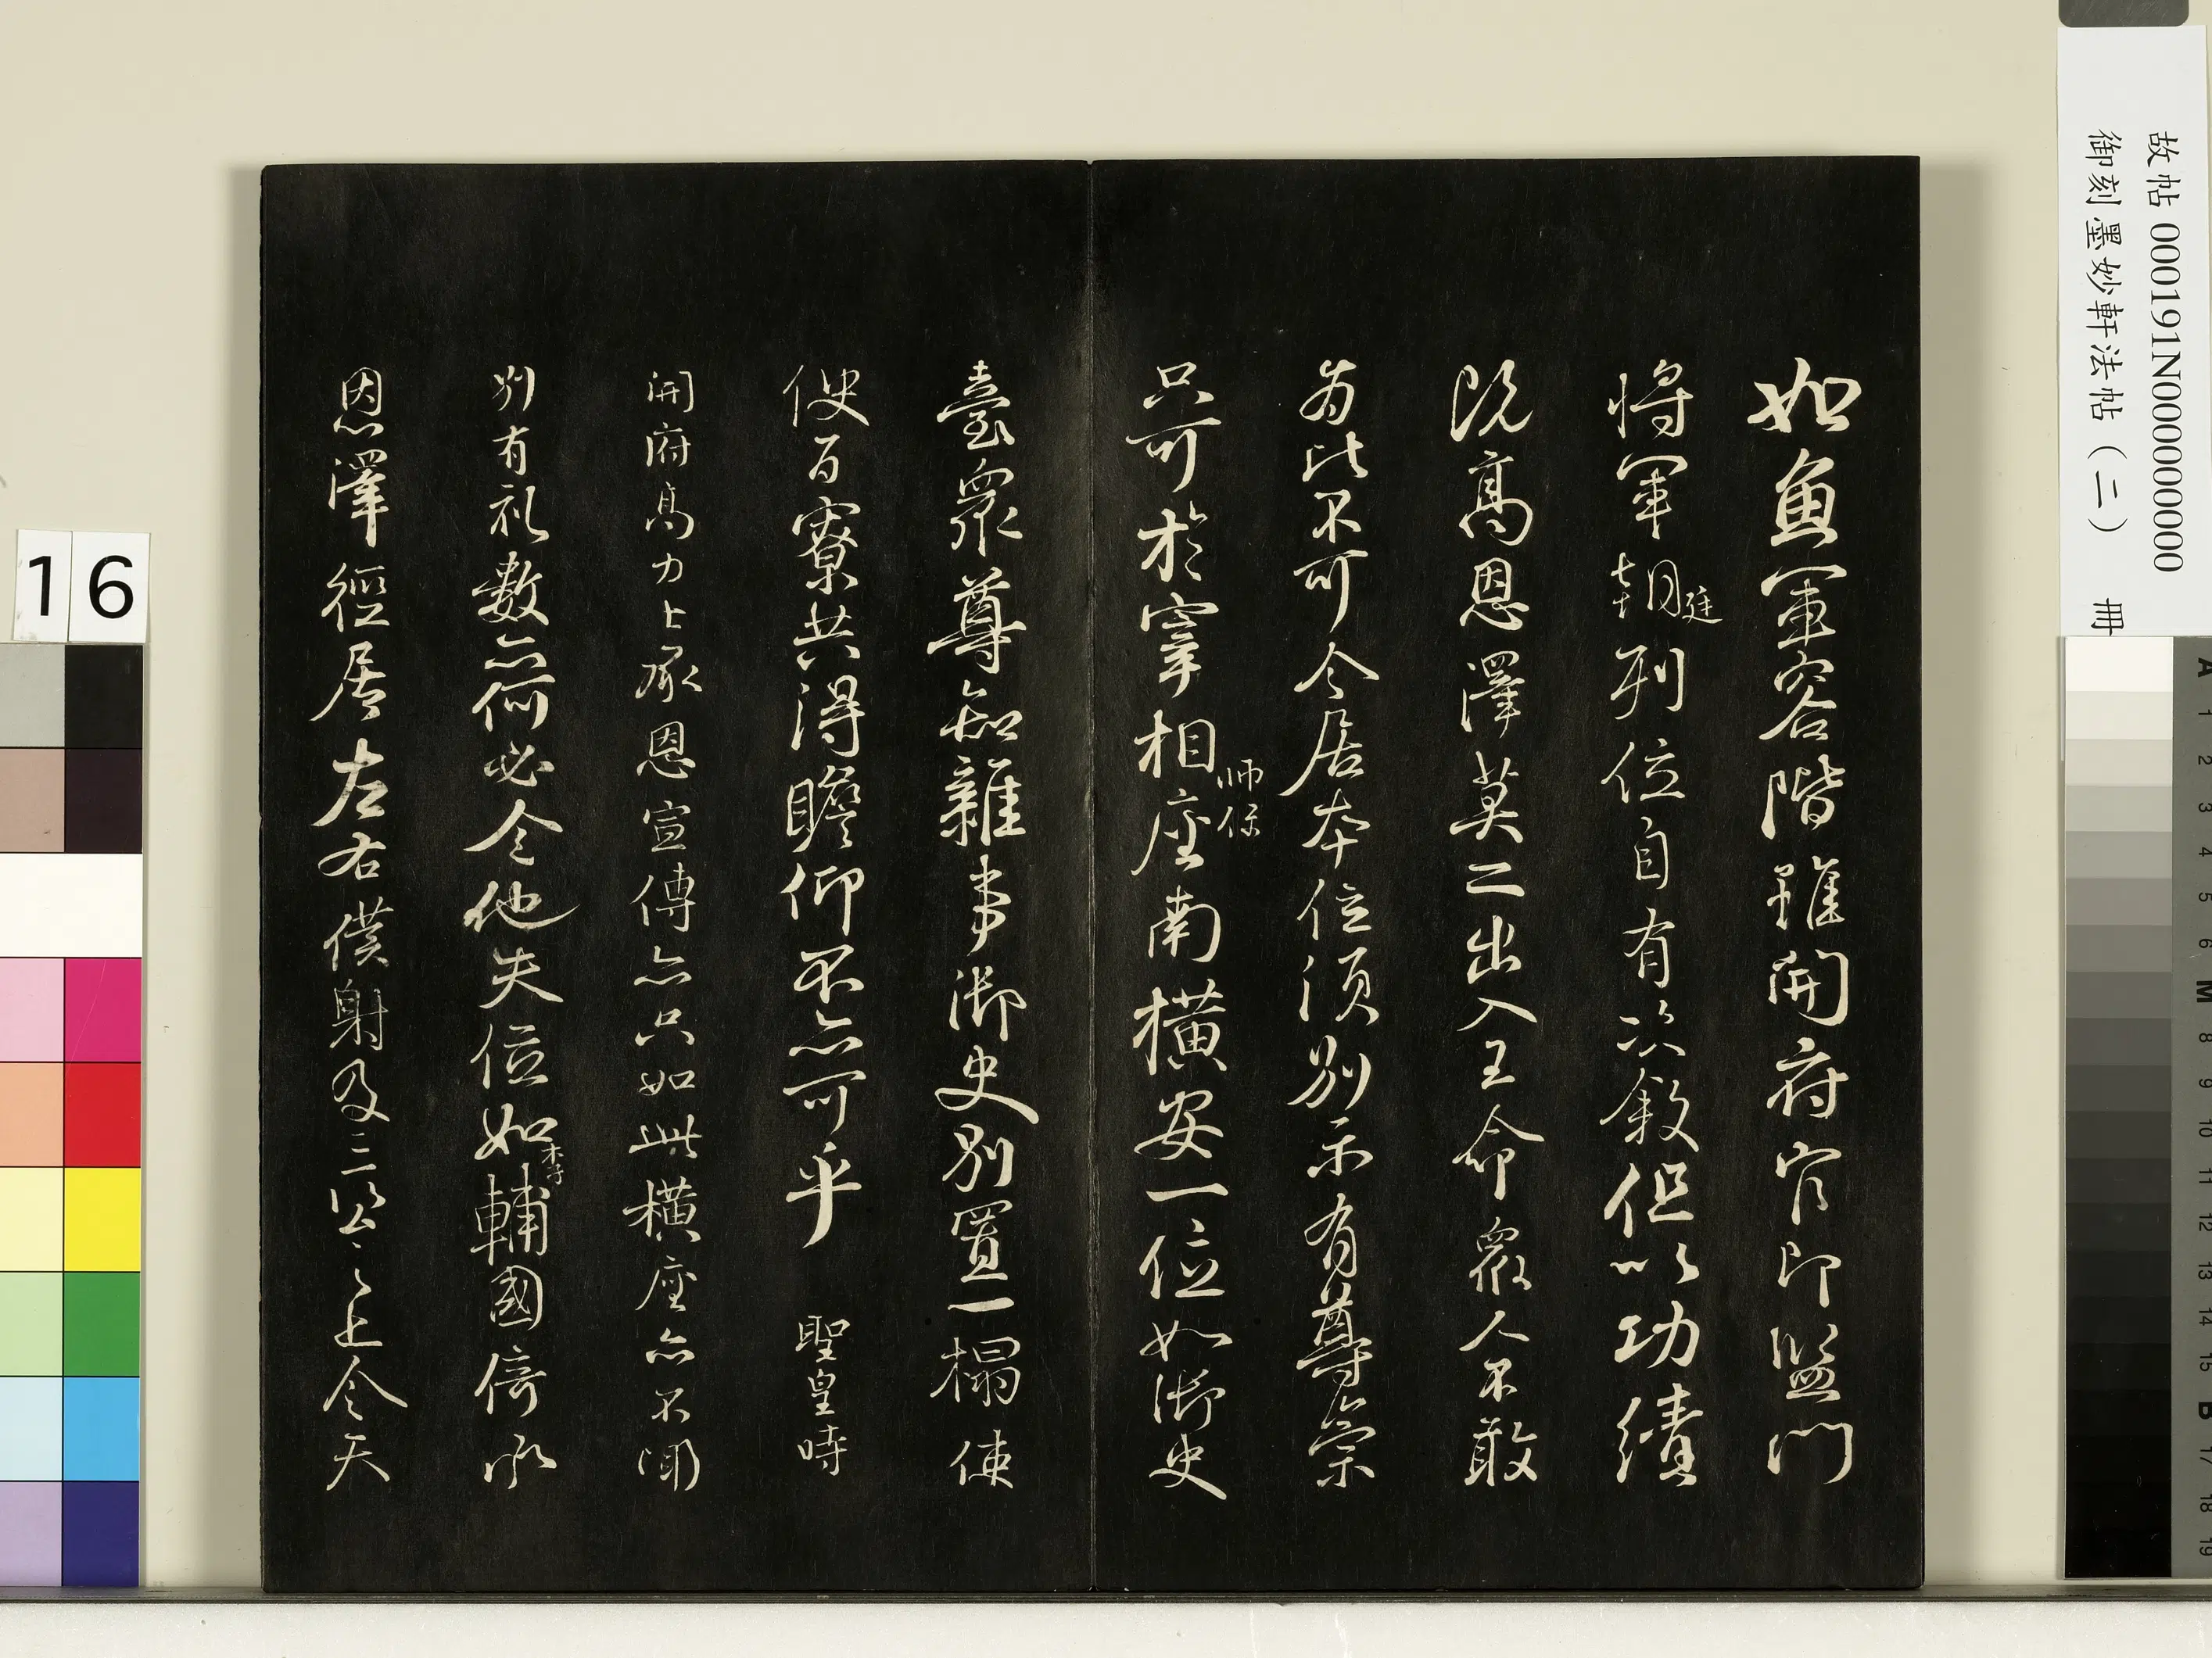 如魚軍容階雖開府官即監門
將軍朝廷列位自有次敘但以功績
既高恩澤莫二出入王命眾人不敢
為比不可令居本位須別示有尊崇
只可於宰相師保座南橫安一位如御史
臺眾尊知雜事御史別置一榻使
使百寮共得瞻仰不亦可乎 聖皇時
開府高力士承恩宣傳亦只如此橫座亦不聞
別有禮數亦何必令他失位如李輔國倚承
恩澤徑居左右僕射及三公之上令天
故帖 000191N000000000
御刻墨妙軒法帖（二） 冊
16
A
1
2
3
4
5
6
M
8
9
10
11
12
13
14
15
B
17
18
19